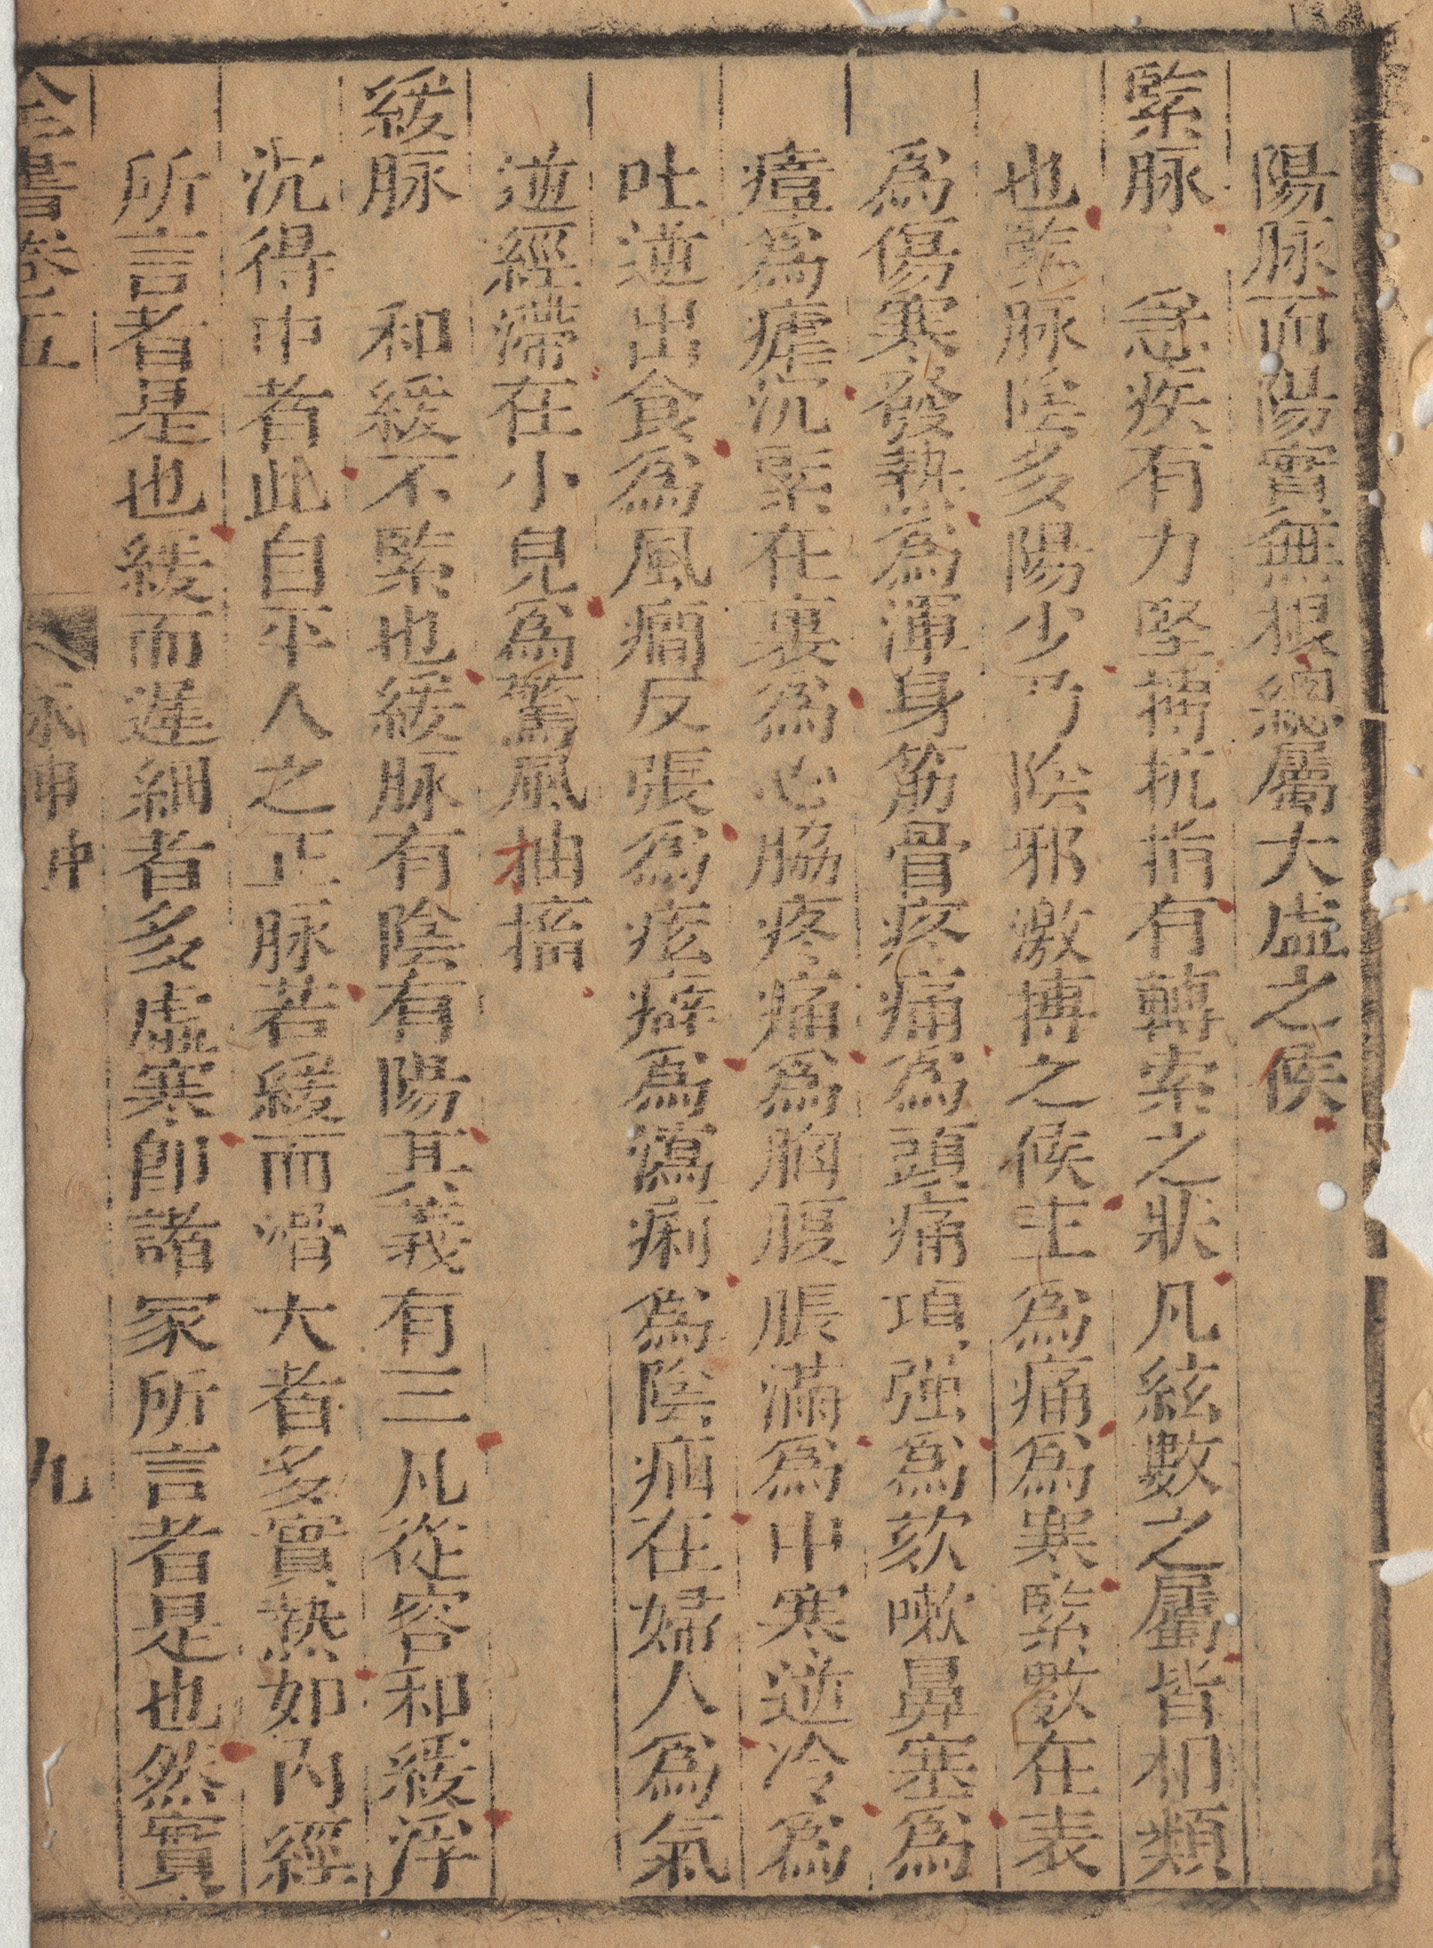 陽脉而陽實無根總屬大虛之候
緊脉　急疾有力堅搏抗指有轉索之狀凡絃數之屬皆相類
也緊脉陰多陽少乃陰邪激搏之候主爲痛爲寒緊數在表
爲傷寒發熱爲渾身筋骨疼痛爲頭痛項强爲欬嗽鼻塞爲
瘴爲瘧沉緊在裏爲心脇疼痛爲胸腹脹滿爲中寒逆冷爲
吐逆出食爲風癎反張爲痃癖爲瀉痢爲陰疝在婦人爲氣
逆經滯在小兒爲驚風抽搐
緩脉　和緩不緊也緩脉有陰有陽其義有三凡從容和緩浮
沉得中者此自平人之正脉若緩而滑大者多實熱如內經
所言者是也緩而遲細者多虛寒卽諸家所言者是也然實
全書卷五　脉神中　九